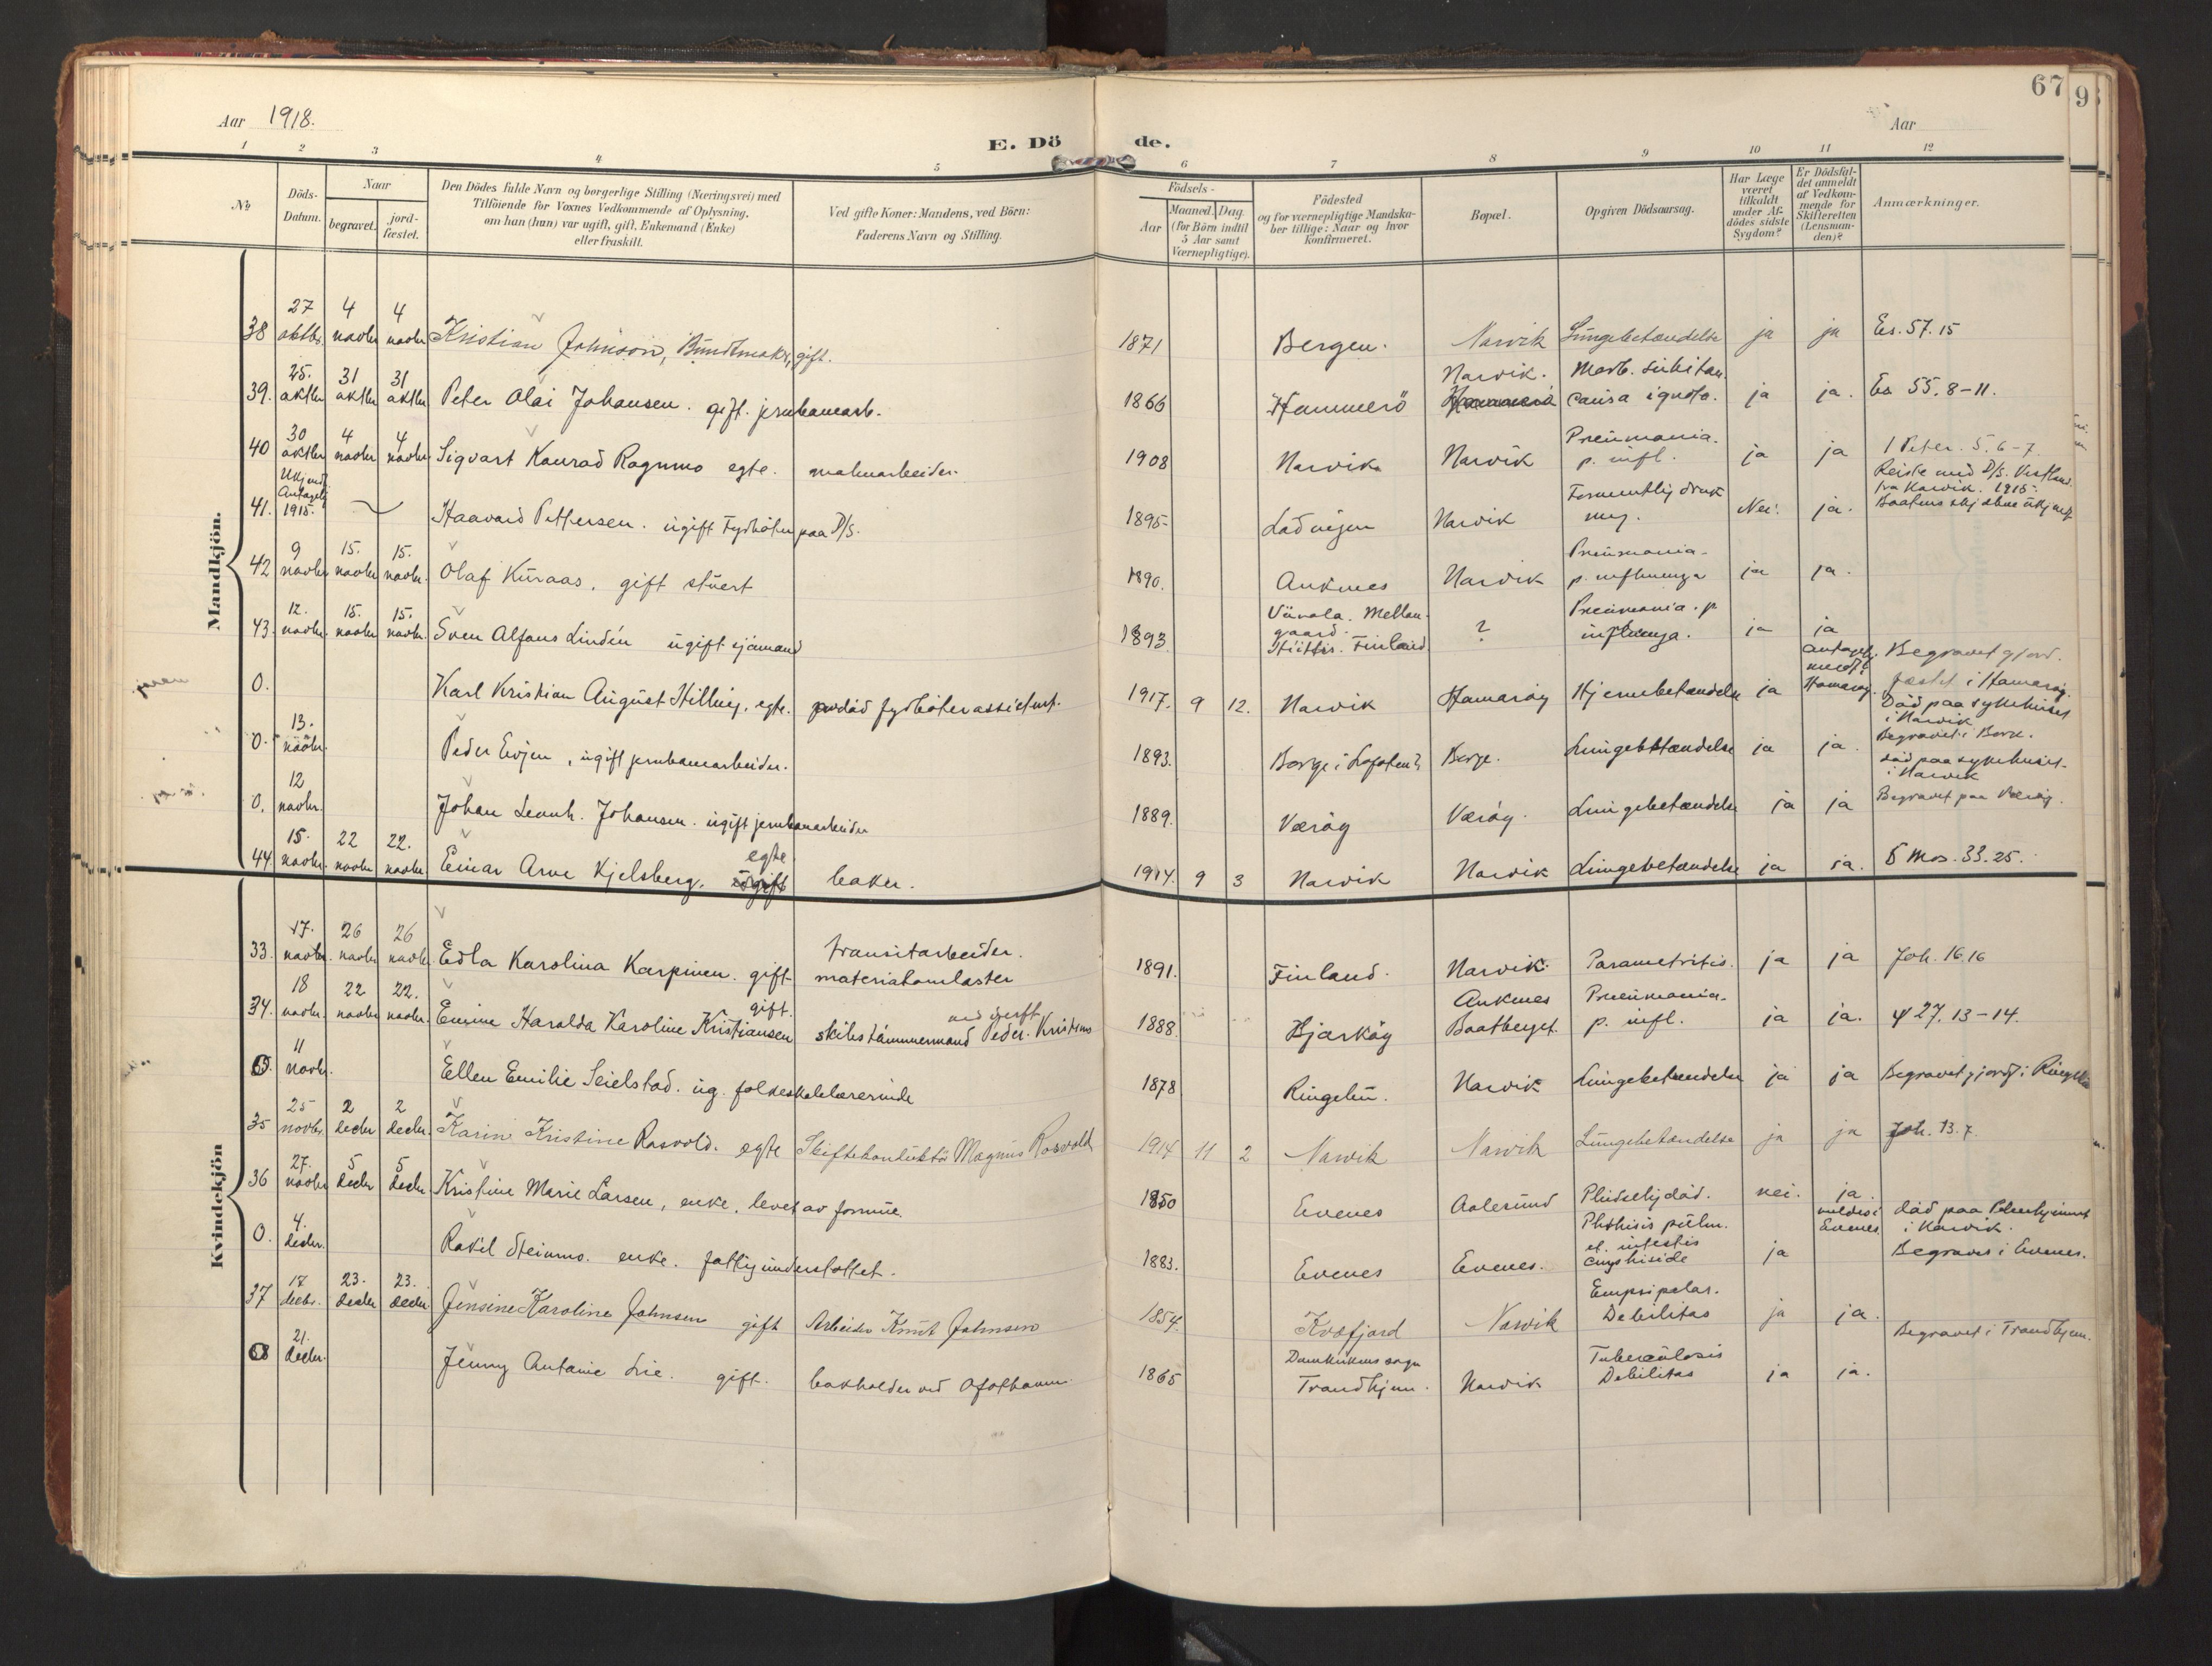 67
9
Aar 1918.
Aar
E. Dö de.
1 2 3 4 5 6 7 8 9 10 11 12
№
Döds-Datum.
Naar
begravet.
jord-fæstet.
Den Dödes fulde Navn og borgerlige Stilling (Næringsvei) med
Tilföiende for Voxnes Vedkommende af Oplysning,
om han (hun) var ugift, gift, Enkemand (Enke)
eller fraskilt.
Ved gifte Koner: Mandens, ved Börn:
Faderens Navn og Stilling.
Födsels-
Aar
Maaned. Dag.
(for Börn indtil
5 Aar samt
Værnepligtige).
Födested
og for værnepligtige Mandska-
ber tillige: Naar og hvor
konfirmeret.
Bopæl.
Opgiven Dödsaarsag.
Har Læge
været
tilkaldt
under Af-
dödes sidste
Sygdom?
Er Dödsfal-
det anmeldt
af Vedkom-
mende for
Skifteretten
(Lensman-
den)?
Anmærkninger.
Mandkjön.
38 27 oktbr. 4 novbr 4 novbr Kristian Johnson, Buntmaker, gift. 1871 Bergen. Narvik Lungebetændelse ja ja Es. 57. 15
39. 25. oktbr 31 oktbr 31 oktbr Peter Olai Johansen. gift. jernbanearb. 1866 Hammerö Narvik. Morb. subitan. causa ignota. ja ja. Es 55. 8-11.
40 30 oktbr 4 novbr 4 novbr Sigvart Konrad Ragnmo egte. malmarbeider. 1908 Narvik Narvik Pneumonia. p. infl. ja ja 1 Peter. 5. 6-7.
41. Ukjendt. Antagelig 1915. Haavard Pettersen. ugift Fyrböter paa D/S. 1895 Lödingen Narvik Formentlig drukning. Nei. ja. Reiste med D/S. Vestland. fra Narvik. 1915. Baatens skjæbne ukjendt
42 9 novbr 15. novbr 15. novbr. Olaf Kuraas. gift stuert 1890. Ankenes Narvik Pneumonia p. influenza ja ja.
43. 12. novbr. 15. novbr 15. novbr. Sven Alfons Lindén ugift sjömand 1893 Vänola. Mellangaard. Hiittis. Finland ? Pneumonia. p. influenza. ja ja
0. Karl Kristian August Hilling, egte. fyrböterassistent. 1917. 9 12. Narvik Hamaröy Hjernebetændelse ja antagelig meldt? Hamaröy. Begravet gjord-fæstet i Hamaröy.
0. 13. novbr. Peder Evjen, ugift jernbanearbeider. 1893. Borge i Lofoten? Borge. Lungebetændelse ja ja. Död paa sykehuset i Narvik Begravet i Borge.
0. 12 novbr. Johan Leonh. Johansen. ugift jernbanearbeider 1889. Værøy Værøy. Lungebetændelse ja ja död paa sykehuset i Narvik Begravet paa Værøy.
44. 15. novbr. 22 novbr 22. novbr Einar Arve Kjelsberg. egte baker. 1914. 9 3 Narvik Narvik Lungebetændelse ja ja. 5 Mos. 33. 25.
Kvindekjön
33. 17. novbr. 26 novbr 26 novbr. Edla Karolina Karpinen. gift transitarbeider. 1891. Finland. Narvik. Parametritis. ja ja Joh. 16. 16
34. 18 novbr. 22 novbr. 22. novbr. Emine Haralda Karoline Kristiansen gift. skibstömmermand Peder. Kristians 1888. Bjarköy Ankenes Baatberget. Pneumonia. p. infl. ja ja. ψ 27. 13-14.
0. 11 novbr. Ellen Emilie Seielstad. ug. folkeskolelærerinde 1878 Ringebu. Narvik Lungebetændelse ja ja Begravet gjordf. i Ringebu
35 25 novbr. 2 decbr 2 decbr. Karin Kristine Rosvold. egte Skiftekonduktör Magnus Rosvold 1914 11 2 Narvik Narvik Lungebetændelse ja ja Joh. 13. 7.
36 27. novbr 5 decbr 5 decbr. Kristine Marie Larsen, enke, levet av formue. 1850 Evenes Aalesund Pludselig död. nei. ja.
0. 4. decbr. Rakel Steinmo. enke. fattigunderstöttet. 1883. Evenes Evenes. Phthisis pulm. et. ja meldes i Evenes död paa i Narvik. Begraves i Evenes.
37 17 decbr. 23. decbr 23. decbr. Jensine Karoline Johnsen gift Arbeider Knut Johnsen 1854. Kvæfjord Narvik Debilitas ja ja.
0 21. decbr. Jenny Antonie Lie. gift. bokholder ved Ofotbanen. 1865 Domkirkens sogn Trondhjem. Narvik Tuberculosis Debilitas ja ja. Begravet i Trondhjem.